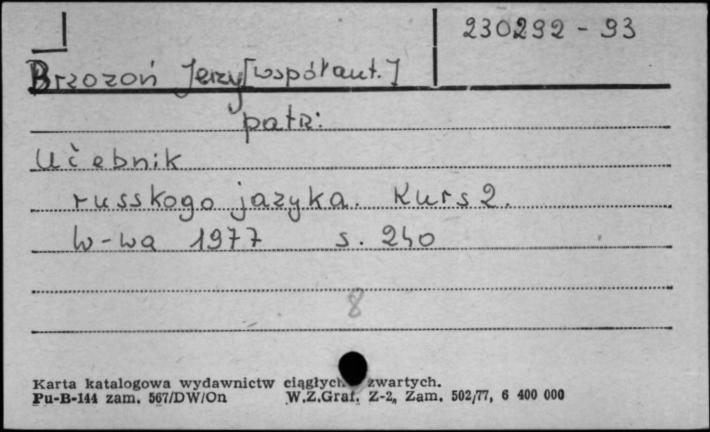 230292 - 93
Brzozoń Jerzy [współaut.]
patrz:
Učebnik
russkogo jazyka. Kurs 2.
W-wa 1977 s. 240
8
Karta katalogowa wydawnictw ciągłych zwartych.
Pu-B-144 zam. 567/DW/On W.Z.Graf. Z-2, Zam. 502/77, 6 400 000